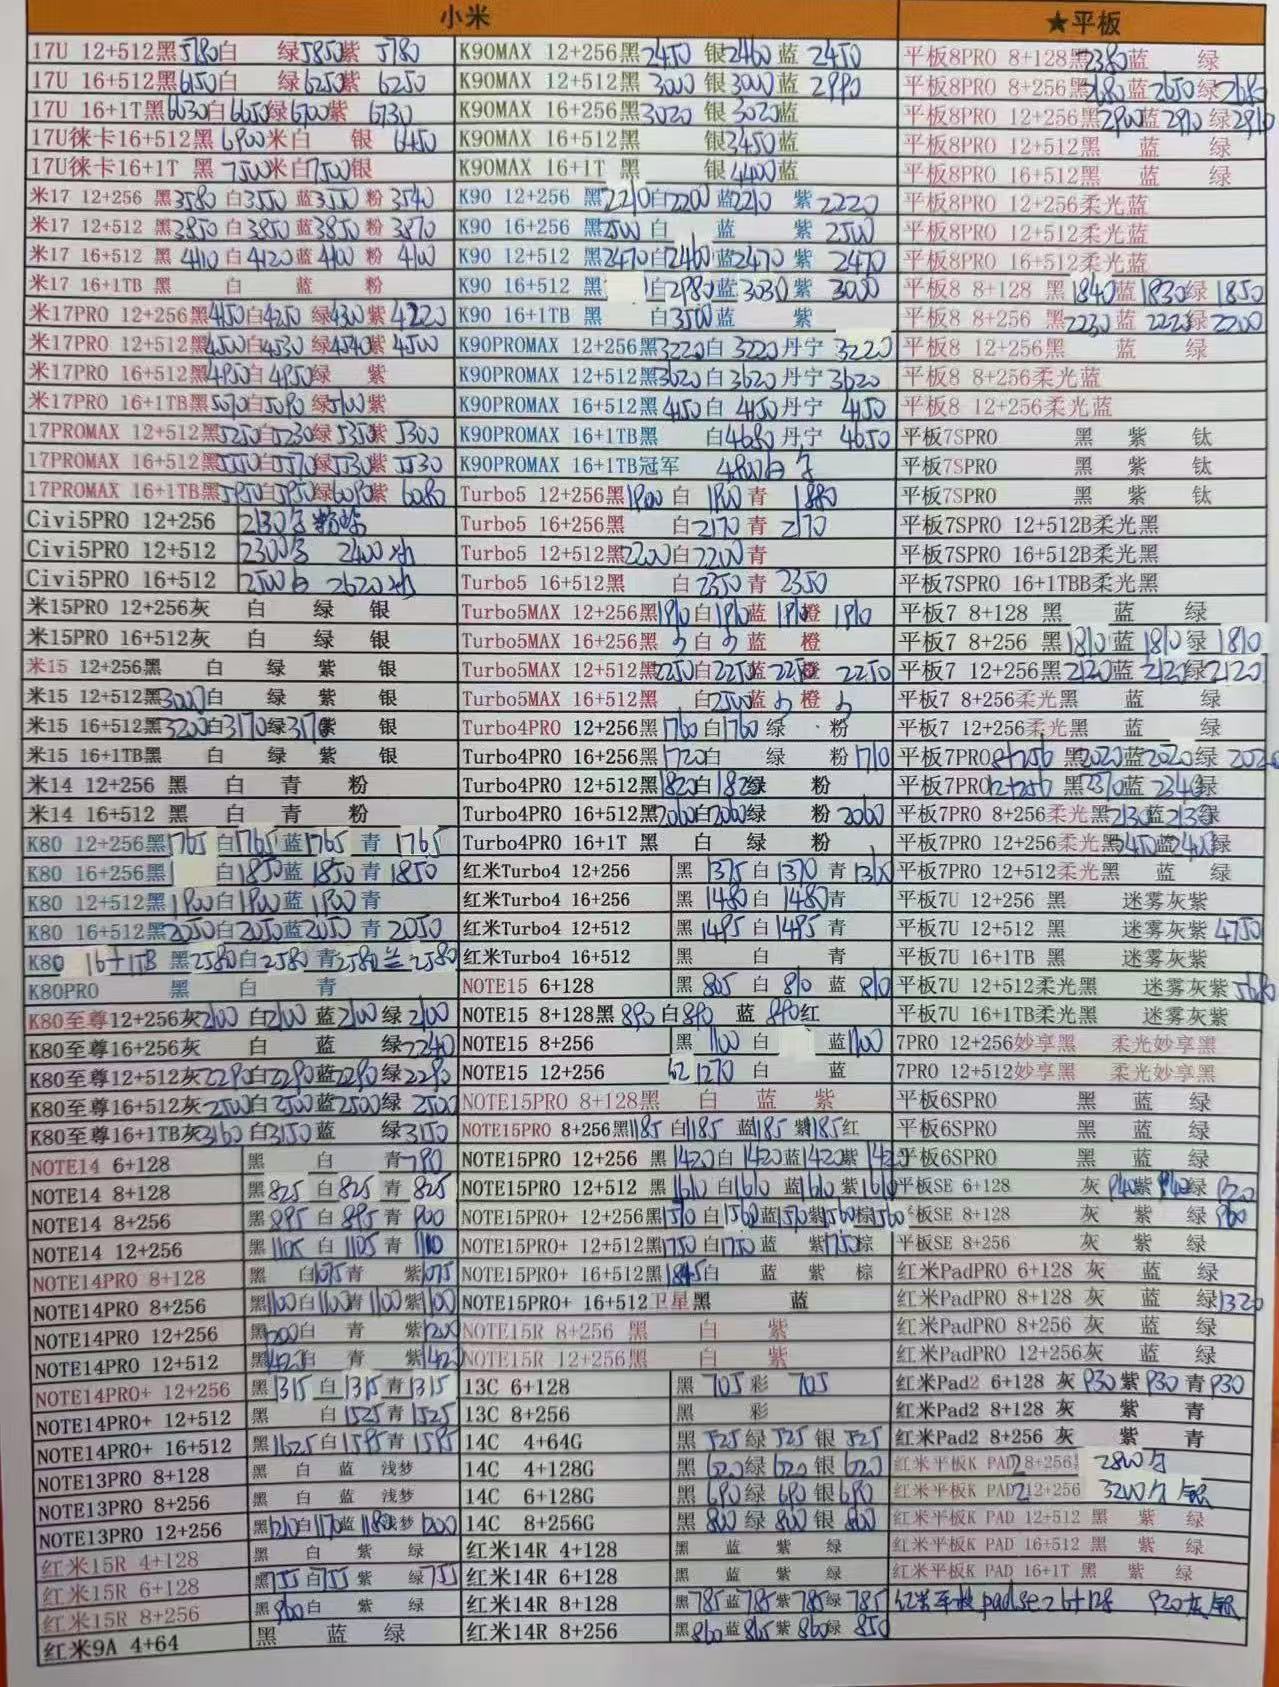 小米
17U 12+512黑5780白 绿5850紫 5780
17U 16+512黑6150白 绿6250紫 6250
17U 16+1T黑6030白6650绿6700紫 6730
17U徕卡16+512黑 6900米白 银 6450
17U徕卡16+1T 黑 7500米白7500银
米17 12+256 黑3580白3550蓝3550粉 3540
米17 12+512 黑3850白3850蓝3850粉 3870
米17 16+512 黑 4110白4120蓝4100粉 4100
米17 16+1TB 黑 白 蓝 粉
米17PRO 12+256黑4150白4250 绿4300紫 4220
米17PRO 12+512黑4500白4530 绿4540紫 4500
米17PRO 16+512黑4950白4950绿 紫
米17PRO 16+1TB黑5070白5090 绿5100紫
17PROMAX 12+512黑5250白5230绿5350紫 5300
17PROMAX 16+512黑5510白5570绿5530紫 5530
17PROMAX 16+1TB黑5950白5950绿6090紫 6080
Civi5PRO 12+256 2130
Civi5PRO 12+512 2300 2400
Civi5PRO 16+512 2500白 2620
米15PRO 12+256灰 白 绿 银
米15PRO 16+512灰 白 绿 银
米15 12+256黑 白 绿 紫 银
米15 12+512黑3000白 绿 紫 银
米15 16+512黑3200白3170绿3170紫 银
米15 16+1TB黑 白 绿 紫 银
米14 12+256 黑 白 青 粉
米14 16+512 黑 白 青 粉
K80 12+256黑1765 白1765蓝1765 青 1765
K80 16+256黑 白1850蓝1850青 1850
K80 12+512黑1900白1900蓝1900青
K80 16+512黑2050白2050蓝2050 青 2050
K80 16+1TB 黑2580白2580 青2580兰2580
K80PRO 黑 白 青
K80至尊12+256灰2100 白2100 蓝2100 绿2100
K80至尊16+256灰 白 蓝 绿2240
K80至尊12+512灰2290白2290蓝2290绿2290
K80至尊16+512灰2500白2500蓝2500绿 2500
K80至尊16+1TB灰3160 白3150蓝 绿3150
NOTE14 6+128 黑 白 青790
NOTE14 8+128 黑825 白825 青 825
NOTE14 8+256 黑895 白895青 900
NOTE14 12+256 黑1105 白 1105 青 1110
NOTE14PRO 8+128 黑 白1075青 紫1075
NOTE14PRO 8+256 黑1100白1100青1100紫1100
NOTE14PRO 12+256 黑1200白 青 紫1200
NOTE14PRO 12+512 黑1420白 青 紫1420
NOTE14PRO+ 12+256 黑1315白1315青1315
NOTE14PRO+ 12+512 黑 白1525青1525
NOTE14PRO+ 16+512 黑1625白1595青1595
NOTE13PRO 8+128 黑 白 蓝 浅梦
NOTE13PRO 8+256 黑 白 蓝 浅梦
NOTE13PRO 12+256 黑1210白1170蓝1180浅梦1200
红米15R 4+128 黑 白 紫 绿
红米15R 6+128 黑755白755 紫 绿755
红米15R 8+256 黑860白 紫 绿
红米9A 4+64 黑 蓝 绿
K90MAX 12+256黑2450 银2460蓝 2450
K90MAX 12+512黑 3000 银3000蓝 2990
K90MAX 16+256黑3020 银3020蓝
K90MAX 16+512黑 银3450蓝
K90MAX 16+1T 黑 银4400蓝
K90 12+256 黑2210白2200 蓝2210 紫 2220
K90 16+256 黑2500白 蓝 紫 2500
K90 12+512 黑2470白2460蓝2470 紫 2470
K90 16+512 黑 白2980蓝3030紫 3000
K90 16+1TB 黑 白3500蓝 紫
K90PROMAX 12+256黑3220白 3220丹宁 3220
K90PROMAX 12+512黑3620白3620丹宁 3620
K90PROMAX 16+512黑4150白 4150丹宁 4150
K90PROMAX 16+1TB黑 白4680丹宁 4650
K90PROMAX 16+1TB冠军 4800白
Turbo5 12+256黑1900白 1900青 1880
Turbo5 16+256黑 白2170青 2170
Turbo5 12+512黑2200白2200青
Turbo5 16+512黑 白2350青 2350
Turbo5MAX 12+256黑1910白1910蓝1910橙1910
Turbo5MAX 16+256黑 白 蓝 橙
Turbo5MAX 12+512黑2250白2250蓝2250橙 2250
Turbo5MAX 16+512黑 白2500蓝 橙
Turbo4PRO 12+256黑1760白1760绿 粉
Turbo4PRO 16+256黑1720白 绿 粉1710
Turbo4PRO 12+512黑1820白1820绿 粉
Turbo4PRO 16+512黑2060白2060绿 粉2060
Turbo4PRO 16+1T 黑 白 绿 粉
红米Turbo4 12+256 黑 1375白1370青1360
红米Turbo4 16+256 黑 1480白 1480青
红米Turbo4 12+512 黑1495白1495青
红米Turbo4 16+512 黑 白 青
NOTE15 6+128 黑 805 白 810 蓝 810
NOTE15 8+128黑890白890 蓝 890红
NOTE15 8+256 黑1100白 蓝1100
NOTE15 12+256 红1270白 蓝
NOTE15PRO 8+128黑 白 蓝 紫
NOTE15PRO 8+256黑1185 白1185 蓝1185紫1185红
NOTE15PRO 12+256 黑1420白1420蓝1420紫1420
NOTE15PRO 12+512 黑1610白1610蓝1610紫1610
NOTE15PRO+ 12+256黑1570白1560蓝1570紫1560棕1560
NOTE15PRO+ 12+512黑1750白1750蓝 紫1750棕
NOTE15PRO+ 16+512黑1845白 蓝 紫 棕
NOTE15PRO+ 16+512卫星黑 蓝
NOTE15R 8+256 黑 白 紫
NOTE15R 12+256黑 白 紫
13C 6+128 黑 705 彩 705
13C 8+256 黑 彩
14C 4+64G 黑525绿525银525
14C 4+128G 黑620绿620银620
14C 6+128G 黑690绿690银690
14C 8+256G 黑800绿800银800
红米14R 4+128 黑 蓝 紫 绿
红米14R 6+128 黑 蓝 紫 绿
红米14R 8+128 黑785蓝785紫785绿785
红米14R 8+256 黑860蓝865紫860绿850
★平板
平板8PRO 8+128黑2380蓝 绿
平板8PRO 8+256黑2680蓝2650绿2680
平板8PRO 12+256黑2900蓝2910绿2910
平板8PRO 12+512黑 蓝 绿
平板8PRO 16+512黑 蓝 绿
平板8PRO 12+256柔光蓝
平板8PRO 12+512柔光蓝
平板8PRO 16+512柔光蓝
平板8 8+128 黑1840蓝1830绿 1850
平板8 8+256 黑2230蓝 2220绿2200
平板8 12+256黑 蓝 绿
平板8 8+256柔光蓝
平板8 12+256柔光蓝
平板7SPRO 黑 紫 钛
平板7SPRO 黑 紫 钛
平板7SPRO 黑 紫 钛
平板7SPRO 12+512B柔光黑
平板7SPRO 16+512B柔光黑
平板7SPRO 16+1TBB柔光黑
平板7 8+128 黑 蓝 绿
平板7 8+256 黑1810蓝1810绿 1810
平板7 12+256黑2120蓝2120绿2120
平板7 8+256柔光黑 蓝 绿
平板7 12+256柔光黑 蓝 绿
平板7PRO8+256 黑2020蓝2020绿 2020
平板7PRO12+256 黑2370蓝 2340绿
平板7PRO 8+256柔光黑2130蓝2130绿
平板7PRO 12+256柔光黑2450蓝2440绿
平板7PRO 12+512柔光黑 蓝 绿
平板7U 12+256 黑 迷雾灰紫
平板7U 12+512 黑 迷雾灰紫 4750
平板7U 16+1TB 黑 迷雾灰紫
平板7U 12+512柔光黑 迷雾灰紫5680
平板7U 16+1TB柔光黑 迷雾灰紫
7PRO 12+256妙享黑 柔光妙享黑
7PRO 12+512妙享黑 柔光妙享黑
平板6SPRO 黑 蓝 绿
平板6SPRO 黑 蓝 绿
平板6SPRO 黑 蓝 绿
平板SE 6+128 灰 940紫940绿 920
板SE 8+128 灰 紫 绿960
平板SE 8+256 灰 紫 绿
红米PadPRO 6+128 灰 蓝 绿
红米PadPRO 8+128 灰 蓝 绿1320
红米PadPRO 8+256 灰 蓝 绿
红米PadPRO 12+256灰 蓝 绿
红米Pad2 6+128 灰 930紫930青930
红米Pad2 8+128 灰 紫 青
红米Pad2 8+256 灰 紫 青
红米平板K PAD2 8+256 2800
红米平板K PAD212+256 3200 银
红米平板K PAD 12+512 黑 紫 绿
红米平板K PAD 16+512 黑 紫 绿
红米平板K PAD 16+1T 黑 紫 绿
红米平板padse2 6+128 920灰 银